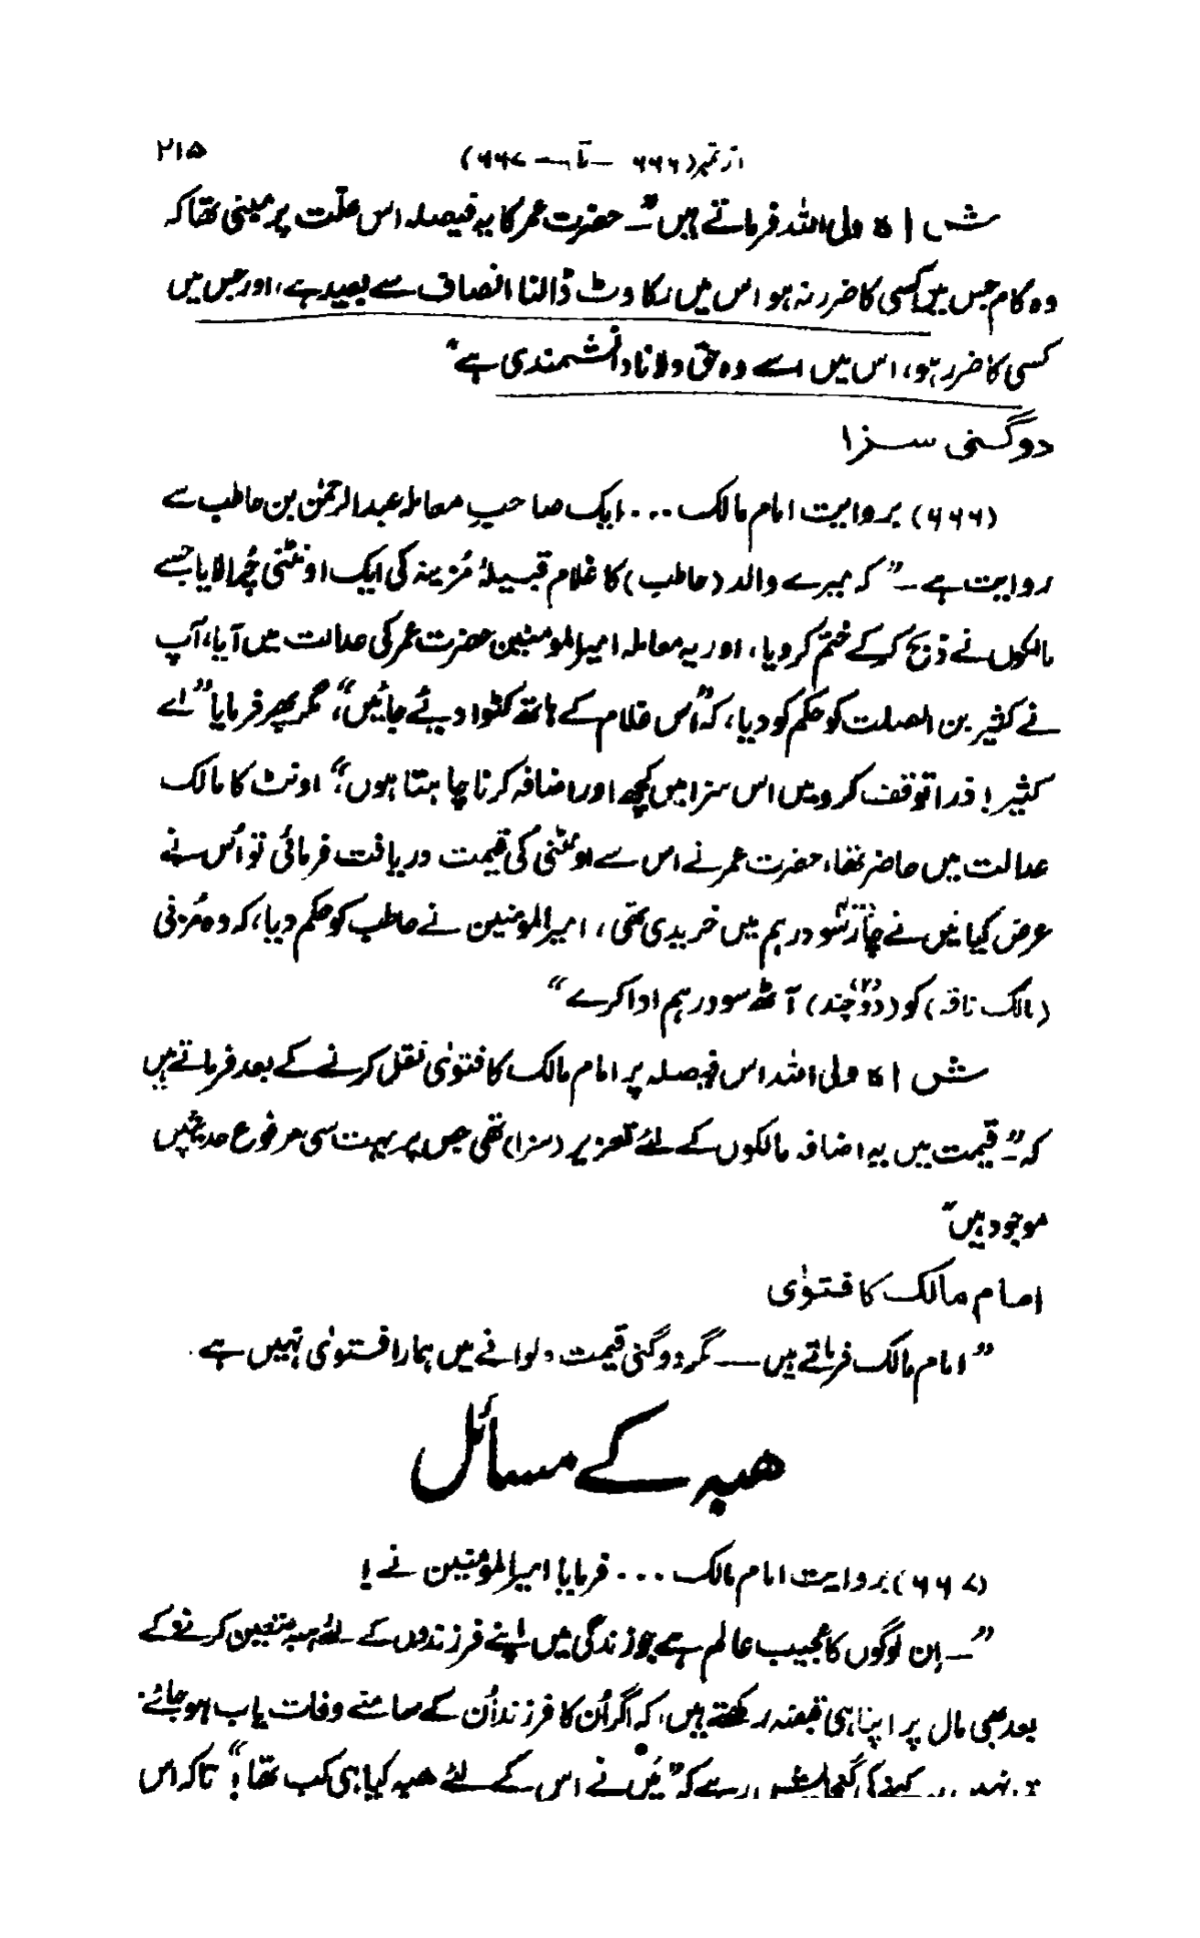 از نمبر (۶۶۶ — تا — ۶۶۷) ۲۱۵
شاہ ولی اللہ فرماتے ہیں "۔ حضرت عمر کا یہ فیصلہ اس علّت پر مبنی تھا کہ
وہ کام جس میں کسی کا ضرر نہ ہو اس میں رکاوٹ ڈالنا انصاف سے بعید ہے، اور جس میں
کسی کا ضرر ہو، اس میں اسے وہ حق دلانا دانشمندی ہے"
دوگنی سزا
(۶۶۶) بروایت امام مالک ... ایک صاحبِ معاملہ عبدالرحمٰن بن حاطب سے
روایت ہے ۔" کہ میرے والد (حاطب) کا غلام قبیلۂ مُزینہ کی ایک اونٹنی چُرا لایا جسے
مالکوں نے ذبح کر کے ختم کر دیا، اور یہ معاملہ امیرالمومنین حضرت عمر کی عدالت میں آیا، آپ
نے کثیر بن الصلت کو حکم کو دیا، کہ "اُس غلام کے ہاتھ کٹوا دیئے جائیں"، مگر پھر فرمایا "اے
کثیر! ذرا توقف کرو میں اس سزا میں کچھ اور اضافہ کرنا چاہتا ہوں"، اونٹ کا مالک
عدالت میں حاضر تھا، حضرت عمر نے اس سے اونٹنی کی قیمت دریافت فرمائی تو اُس نے
عرض کیا میں نے چار سو درہم میں خریدی تھی، امیرالمومنین نے حاطب کو حکم دیا، کہ وہ مُزنی
(مالک ناقہ) کو (دو چند) آٹھ سو درہم ادا کرے"
شاہ ولی اللہ اس فیصلہ پر امام مالک کا فتوٰی نقل کرنے کے بعد فرماتے ہیں
کہ ۔"قیمت میں یہ اضافہ مالکوں کے لئے تعزیر (سزا) تھی جس پر بہت سی مرفوع حدیثیں
موجود ہیں"
امام مالک کا فتوٰی
"امام مالک فرماتے ہیں —— مگر دوگنی قیمت دلوانے میں ہمارا فتوٰی نہیں ہے.
ھبہ کے مسائل
(۶۶۷) بروایت امام مالک ... فرمایا امیرالمومنین نے!
"۔ اِن لوگوں کا عجیب عالم ہے جو زندگی میں اپنے فرزندوں کے لئے ہبہ متعین کرنے کے
بعد بھی مال پر اپنا ہی قبضہ رکھتے ہیں، کہ اگر اُن کا فرزند اُن کے سامنے وفات یاب ہو جائے.
کہنے کی گنجائش رہے کہ "میں نے اس کے لئے ھبہ کیا ہی کب تھا!" تاکہ اس